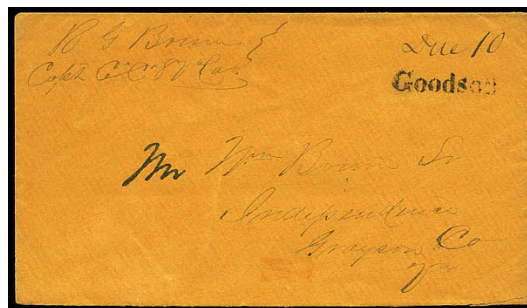 R G Bourne
Capt Co C 8 Va Cav
Due 10
Goodson
Mr Wm Bourn Sr
Independence
Grayson Co
Va